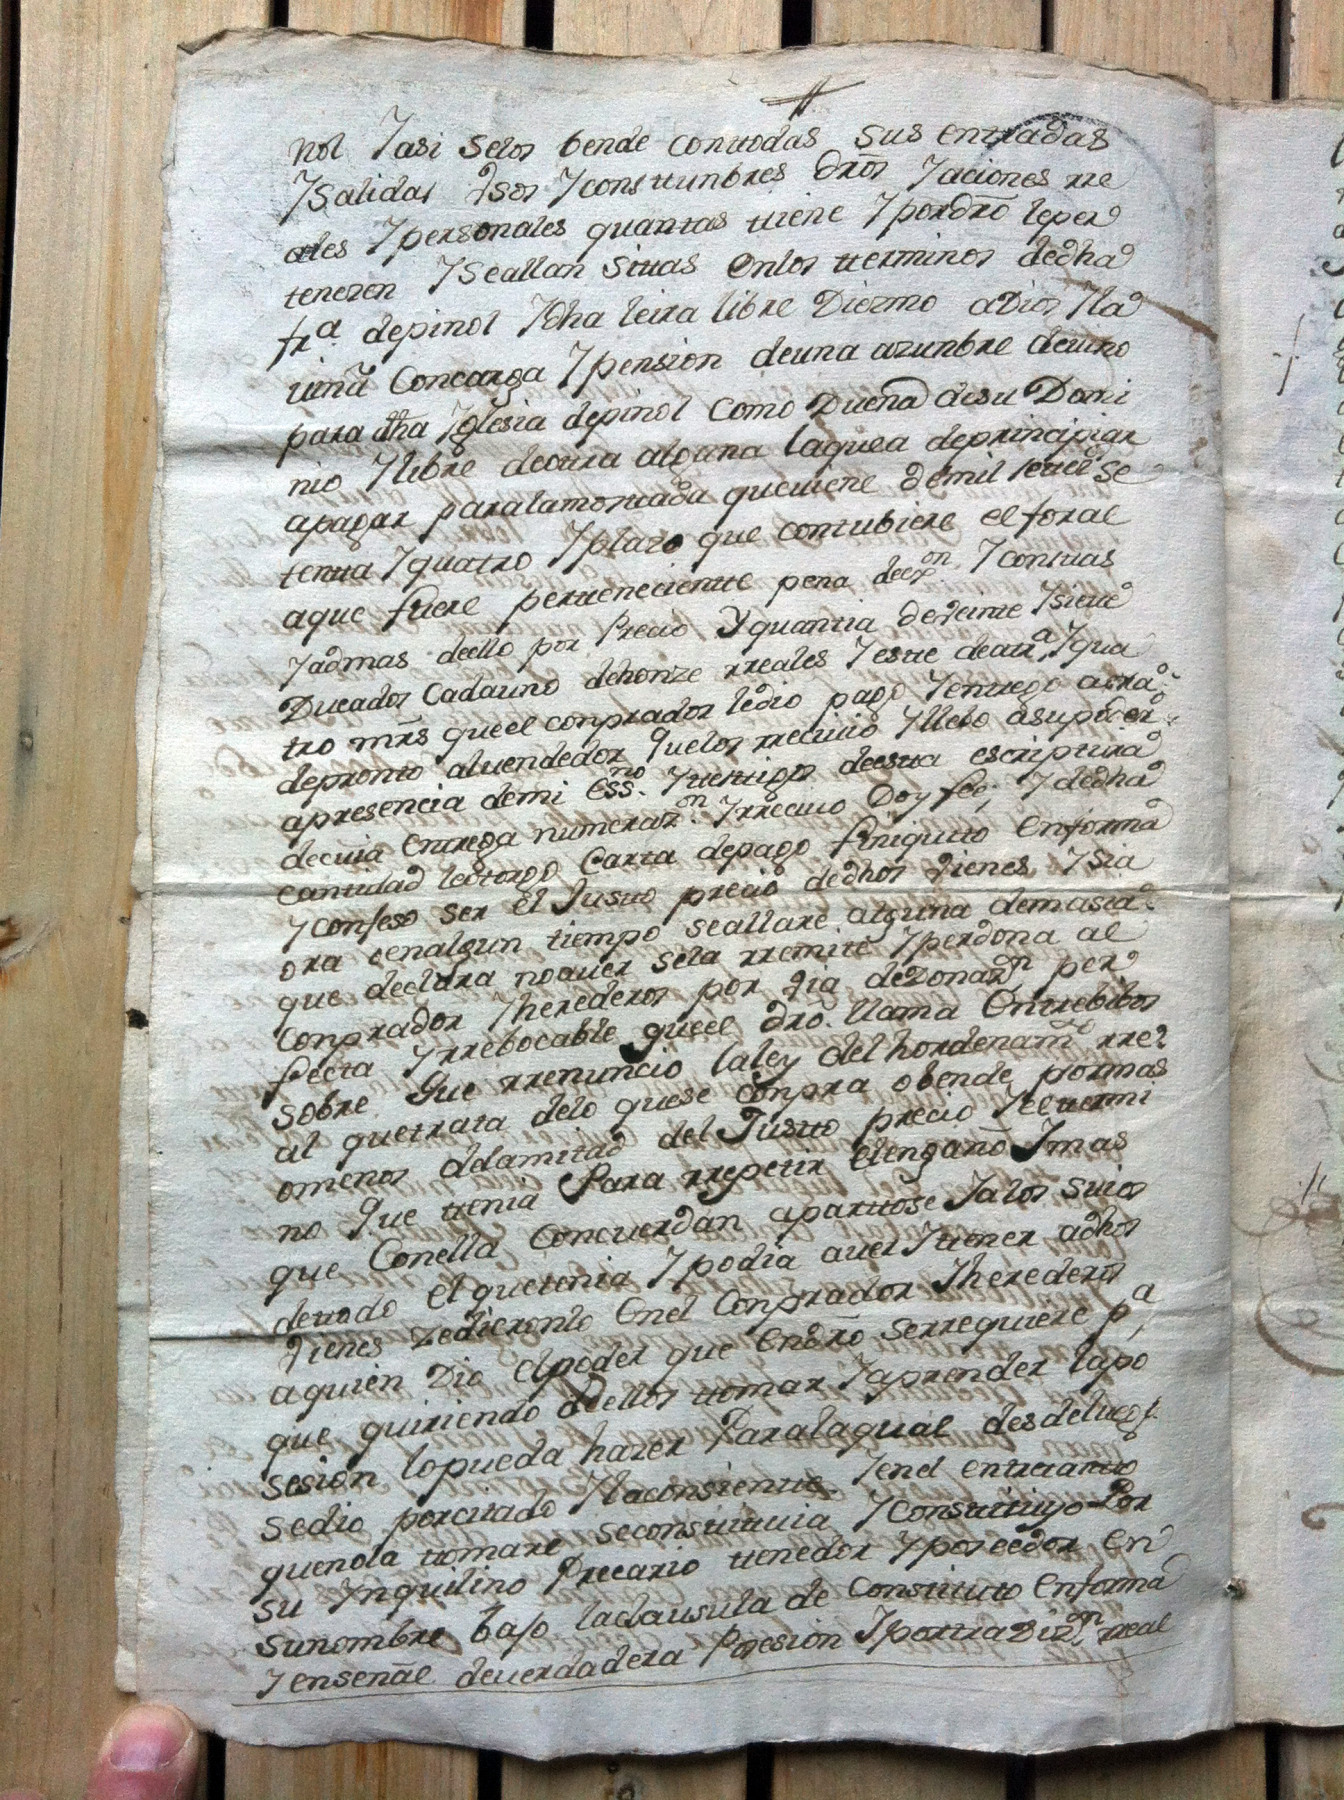 nol Y asi selos bende contodas sus entradas
Y Salidas Vsos Y consttunbres dros Y aciones rre
ales Y personales quantas ttiene Y pordro leper
tenezen Y Seallan Situas enlos tterminos dedha
fra depinol Y dha leira libre Diezmo aDios Y la
Concarga Y pension deuna azunbre devino
para dha Yglesia depinol Como Duena desu Domi
nio Y libre deotra alguna laquea deprincipiar
apagar paralamontada queviene demil settezse
tentta Y quatro Y plazo que conttubiere el foral
aque fuere pertteneciente pena deexon Y conttas
Y admas dello por Precio Y quantia deVeinte Y siete
Ducados Cadauno dehonze rreales Y estte deatra Y qua
tro mrs queel conprador ledio pago Y enttrego aora
depronto alvendedor Quelos rrecivio Y llebo asupoder
apresencia demi essno Y ttesttigos deestta escripttura
decuia entrega numerazon Y rrecivo Doy fee; Y dedha
Cantidad leotorgo Cartta depago finiquito enforma
Y Confeso ser el Justto precio dedhos Vienes Y Sia
ora oenalgun tiempo seallare alguna demasia
que declara noaver sela rremite Y perdona al
Conprador Y herederos por Via deDonazon per
fecta Y rrebocable queel dro. llama Entrebibos
sobre Que rrenuncio laley del hordenamto rre
al quetrata delo quese Conpra obende pormas
omenos delamitad del Justto precio Y eltermi
no Que ttenia Para rrepetir elengaño Y mas
que Conella Concuerdan aparttose Y alos suios
detodo el quetenia Y podia aver Y ttener adhos
Vienes zedieronlo Enel Conprador Y herederos
aquien Dio elpoder que endro serrequiere pa
que quiriendo dellos ttomar Y aprender lapo
sesion lopueda hazer Paralaqual desdeluego
sedio porcitado Y laconsientte Y enel entretanto
quenola ttomare seconstituia Y Constituyo Por
su Ynquilino Precario ttenedor Y poseedor en
sunombre bajo laclausula de Constituto Enforma
Y ensenal deverdadera Posesion Y real